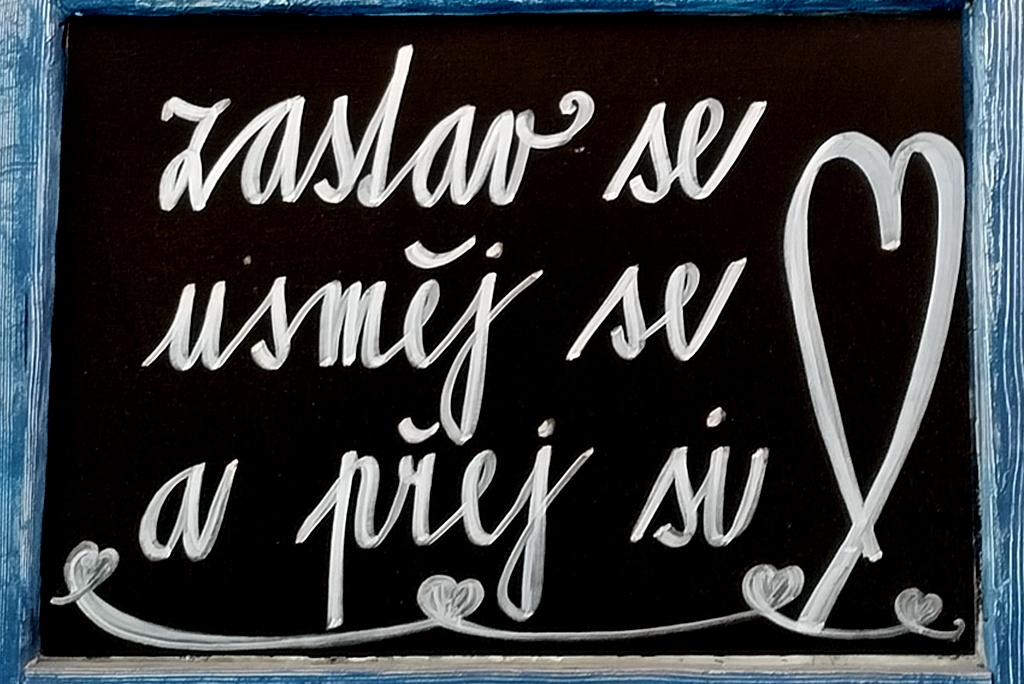 zastav se
usměj se
a přej si